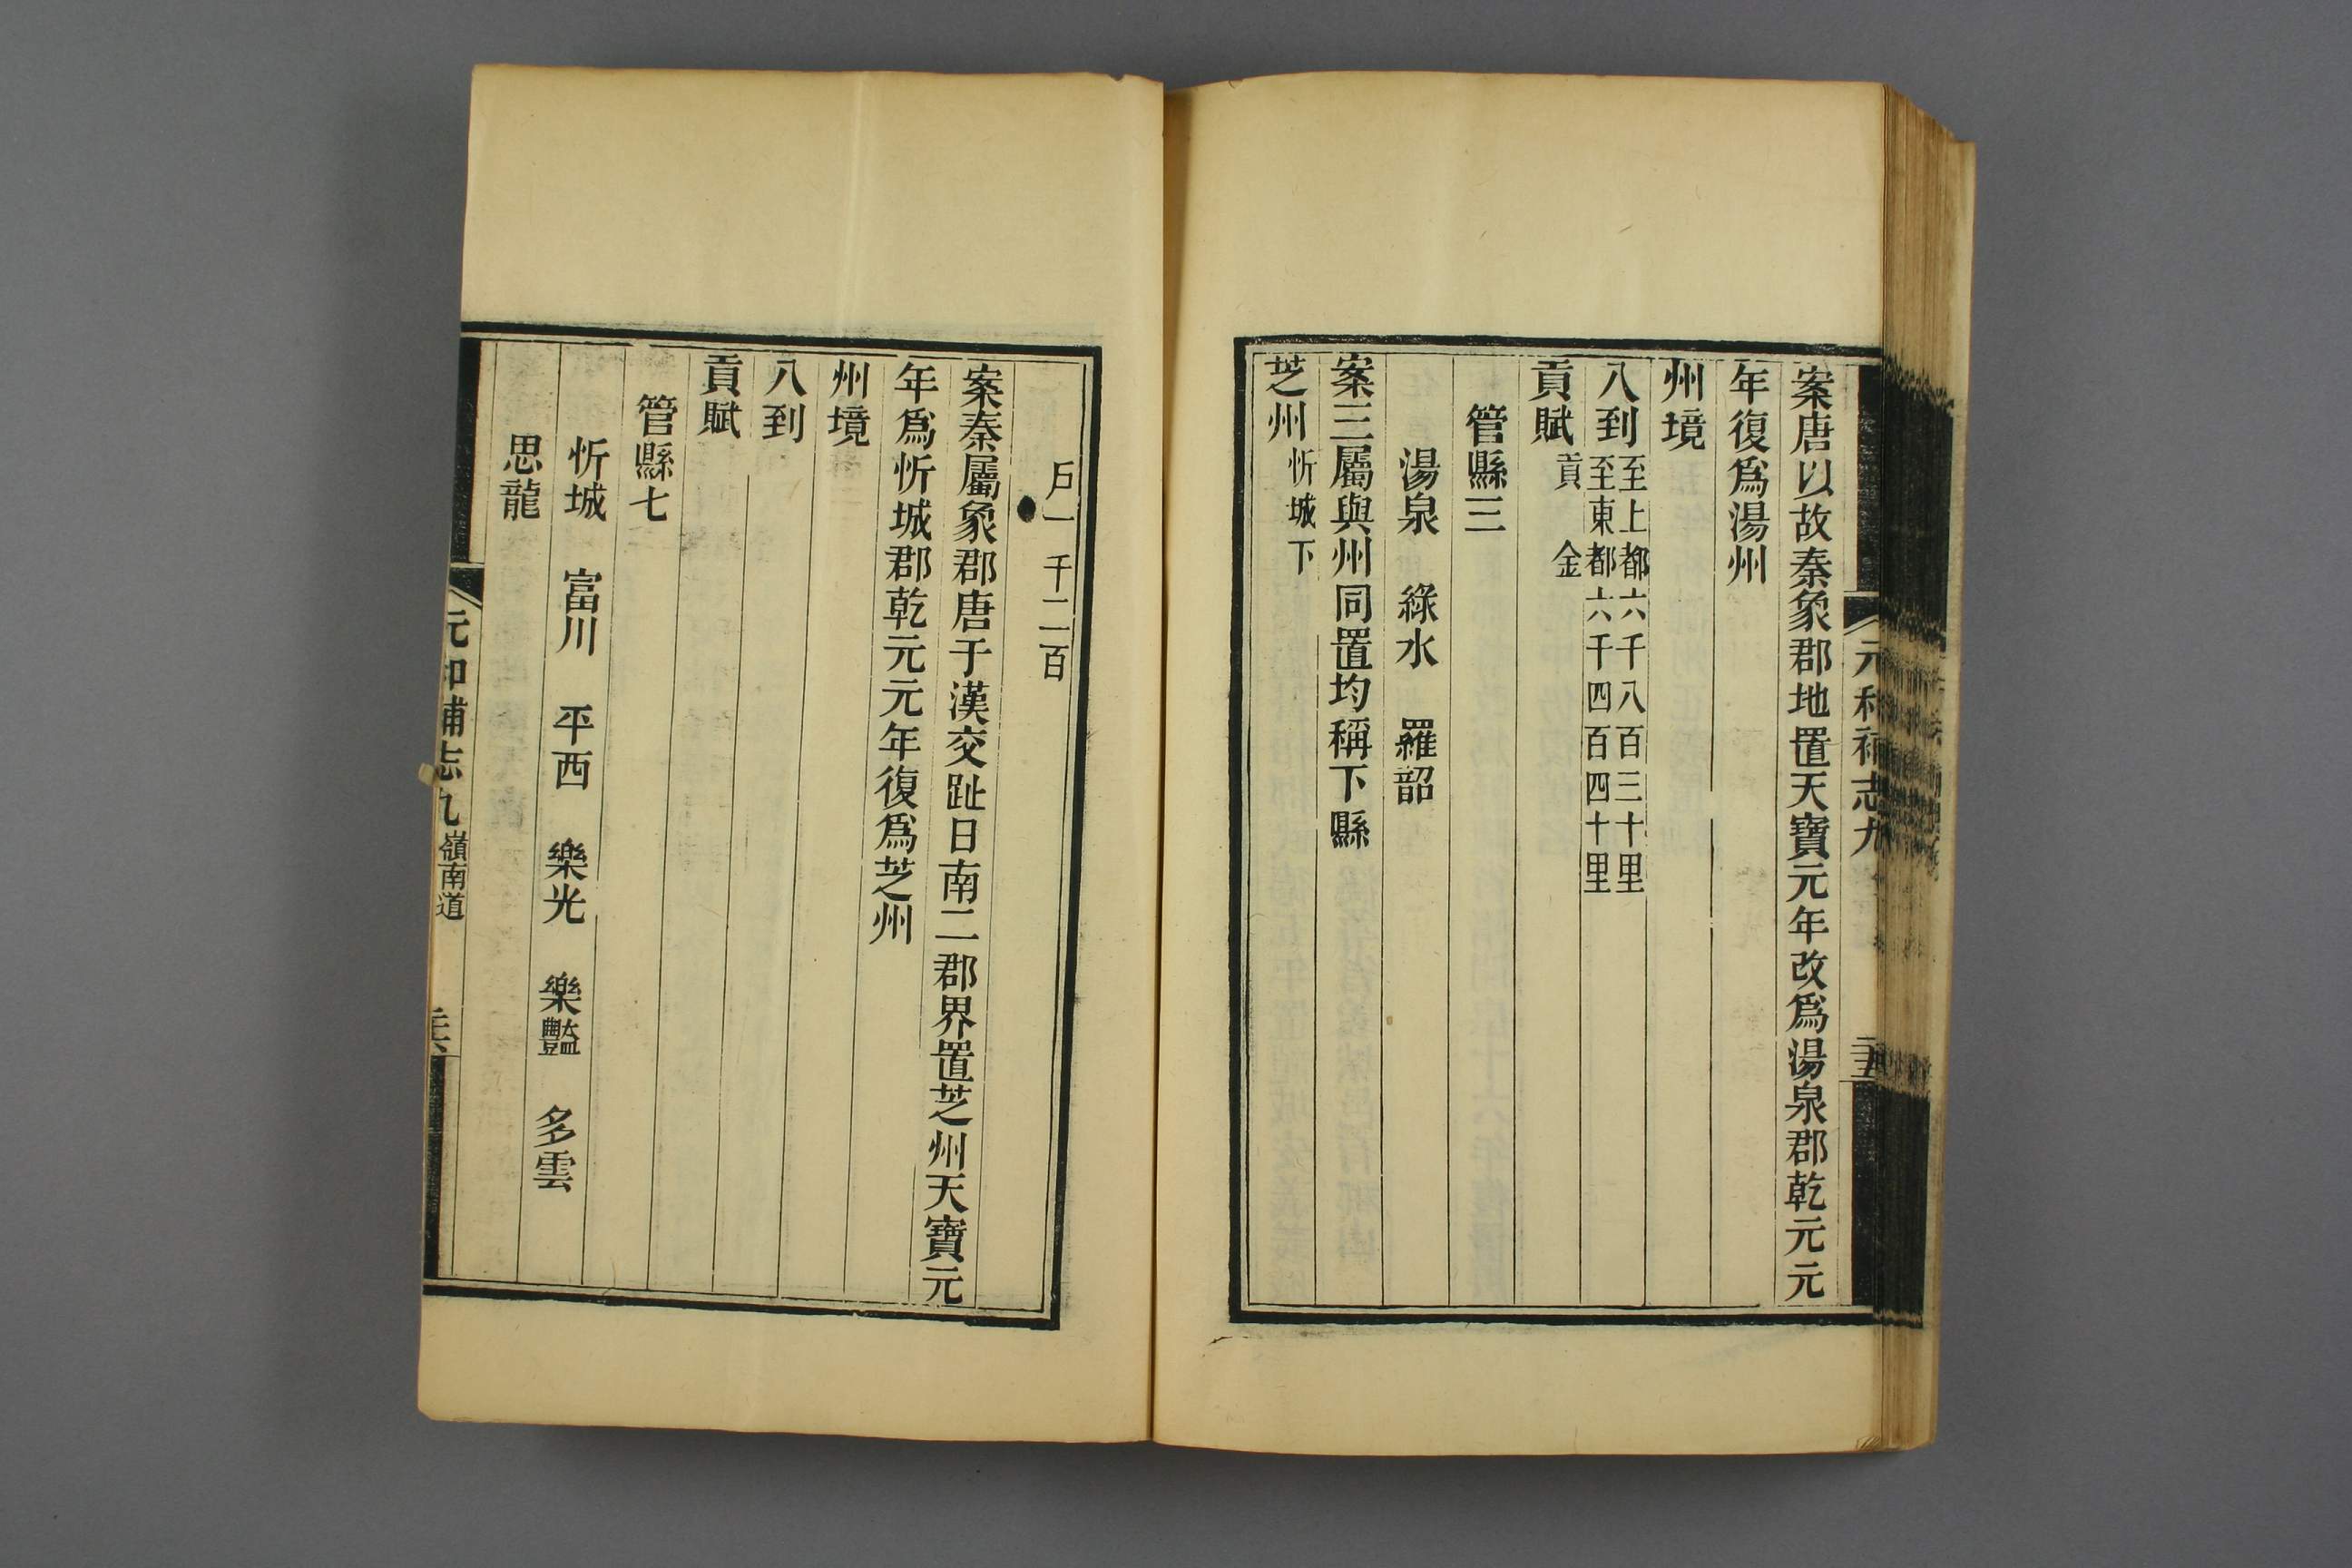 元和補志九
案唐以故秦象郡地置天寶元年改爲湯泉郡乾元元
年復爲湯州
州境
八到至上都六千八百三十里
至東都六千四百四十里
貢賦貢金
管縣三
湯泉 綠水 羅韶
案三屬與州同置均稱下縣
芝州忻城下
戶一千二百
案秦屬象郡唐于漢交趾日南二郡界置芝州天寶元
年爲忻城郡乾元元年復爲芝州
州境
八到
貢賦
管縣七
忻城 富川 平西 樂光 樂豔 多雲
思龍
元和補志九嶺南道